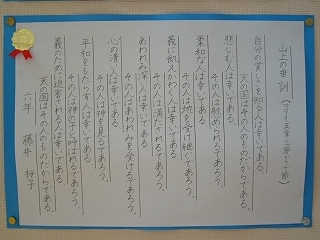 山上の垂訓 (マタイ五章三節~十節)
自分の貧しさを知る人は幸いである。
天の国はその人のものだからである。
悲しむ人は幸いである。
その人は慰められるであろう。
柔和な人は幸いである。
その人は地を受け継ぐであろう。
義に飢えかわく人は幸いである。
その人は満たされるであろう。
あわれみ深い人は幸いである。
その人はあわれみを受けるであろう。
心の清い人は幸いである。
その人は神を見るであろう。
平和をもたらす人は幸いである。
その人は神の子と呼ばれるであろう。
義のために迫害される人は幸いである。
天の国はその人のものだからである。
六年 藤井 裕子